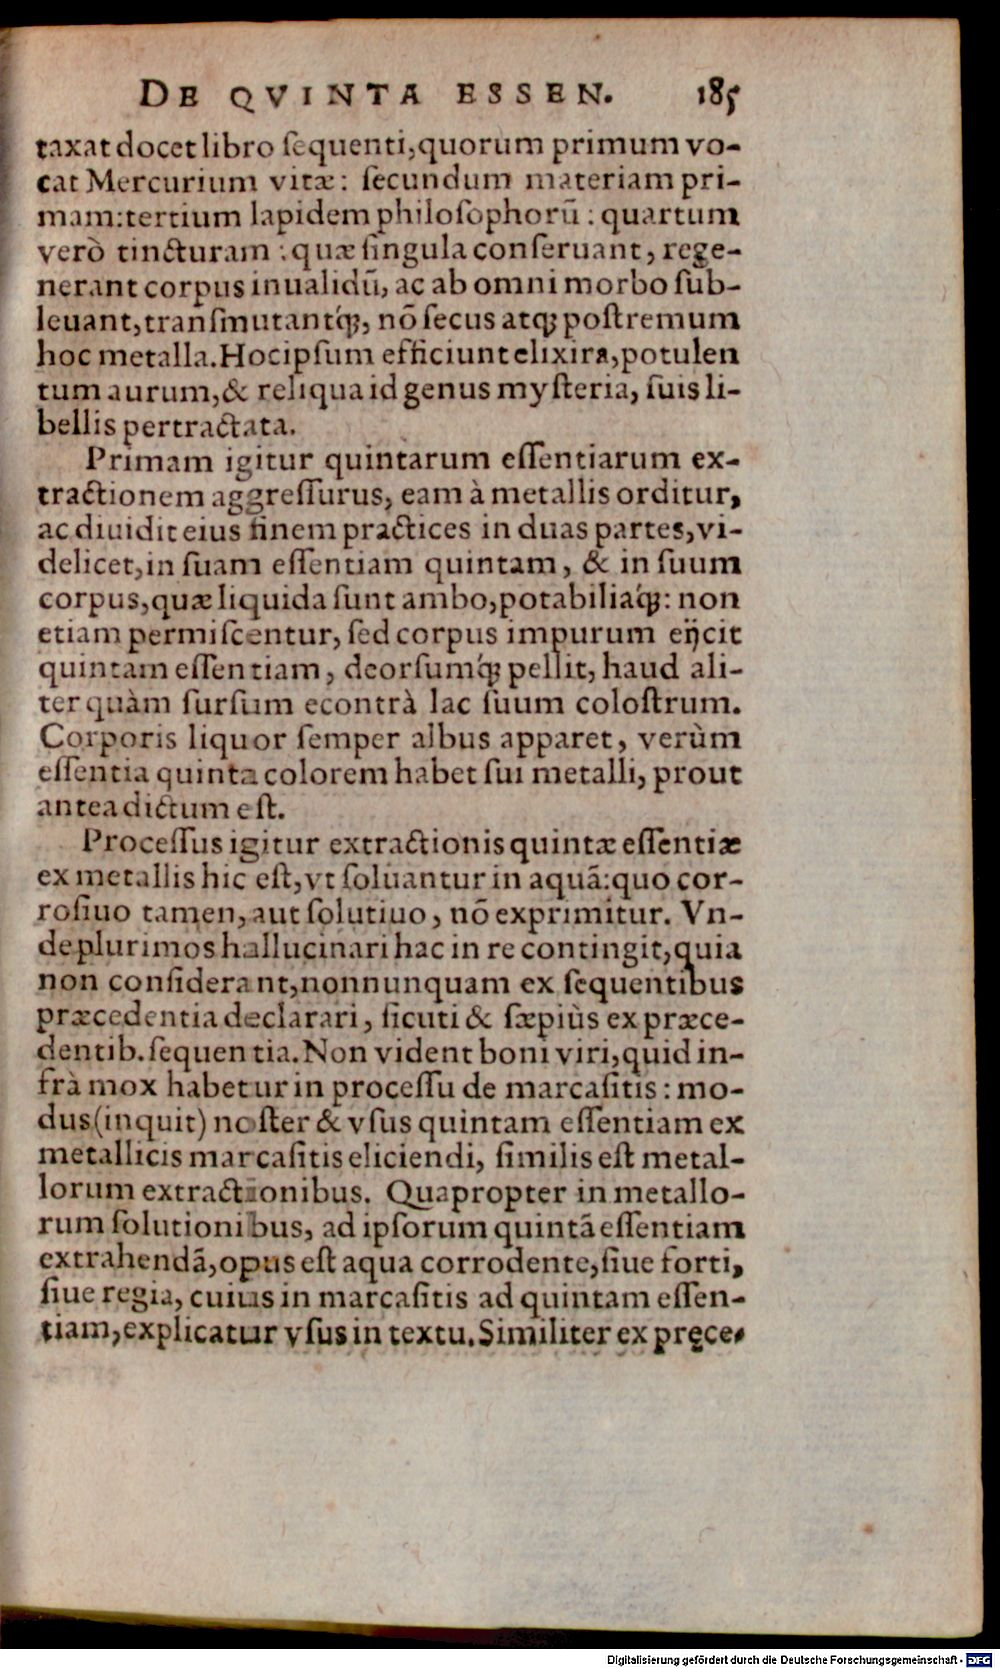 DE QVINTA ESSEN. 185
taxat docet libro ſequenti, quorum primum vo-
cat Mercurium vitæ: ſecundum materiam pri-
mam: tertium lapidem philoſophorũ: quartum
verò tincturam: quæ ſingula conſeruant, rege-
nerant corpus inualidũ, ac ab omni morbo ſub-
leuant, tranſmutantq́ꝫ, nõ ſecus atqꝫ poſtremum
hoc metalla. Hoc ipſum efficiunt elixira, potulen
tum aurum, & reliqua id genus myſteria, ſuis li-
bellis pertractata.
Primam igitur quintarum eſſentiarum ex-
tractionem aggreſſurus, eam à metallis orditur,
ac diuidit eius finem practices in duas partes, vi-
delicet, in ſuam eſſentiam quintam, & in ſuum
corpus, quæ liquida ſunt ambo, potabiliaq́ꝫ: non
etiam permiſcentur, ſed corpus impurum eijcit
quintam eſſentiam, deorſumq́ꝫ pellit, haud ali-
ter quàm ſurſum econtrà lac ſuum coloſtrum.
Corporis liquor ſemper albus apparet, verùm
eſſentia quinta colorem habet ſui metalli, prout
antea dictum eſt.
Proceſſus igitur extractionis quintæ eſſentiæ
ex metallis hic eſt, vt ſoluantur in aquã: quo cor-
roſiuo tamen, aut ſolutiuo, nõ exprimitur. Vn-
de plurimos hallucinari hac in re contingit, quia
non conſiderant, nonnunquam ex ſequentibus
præcedentia declarari, ſicuti & ſæpiùs ex præce-
dentib. ſequentia. Non vident boni viri, quid in-
frà mox habetur in proceſſu de marcaſitis: mo-
dus (inquit) noſter & vſus quintam eſſentiam ex
metallicis marcaſitis eliciendi, ſimilis eſt metal-
lorum extractionibus. Quapropter in metallo-
rum ſolutionibus, ad ipſorum quintã eſſentiam
extrahendã, opus eſt aqua corrodente, ſiue forti,
ſiue regia, cuius in marcaſitis ad quintam eſſen-
tiam, explicatur vſus in textu. Similiter ex pręce-
Digitalisierung gefördert durch die Deutsche Forschungsgemeinschaft - DFG